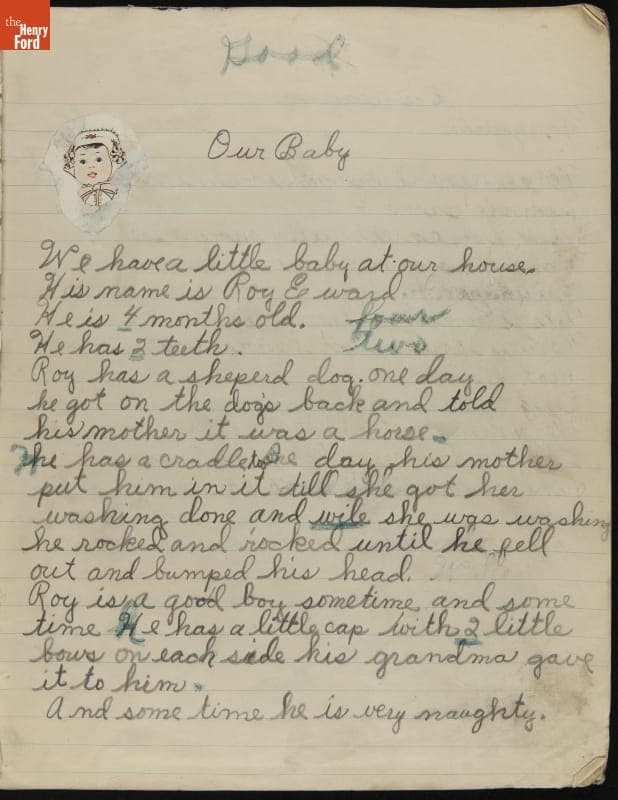 the
Henry
Ford
Good
Our Baby
We have a little baby at our house.
His name is Roy Eward
He is 4 months old. four
He has 2 teeth. two
Roy has a sheperd dog. one day
he got on the dogs back and told
his mother it was a horse.
He has a cradle to One day his mother
put him in it till she got her
washing done and wile she was washing
he rocked and rocked until he fell
out and bumped his head.
Roy is a good boy sometime and some
time He has a little cap with 2 little
bows on each side his grandma gave
it to him.
And some time he is very naughty.